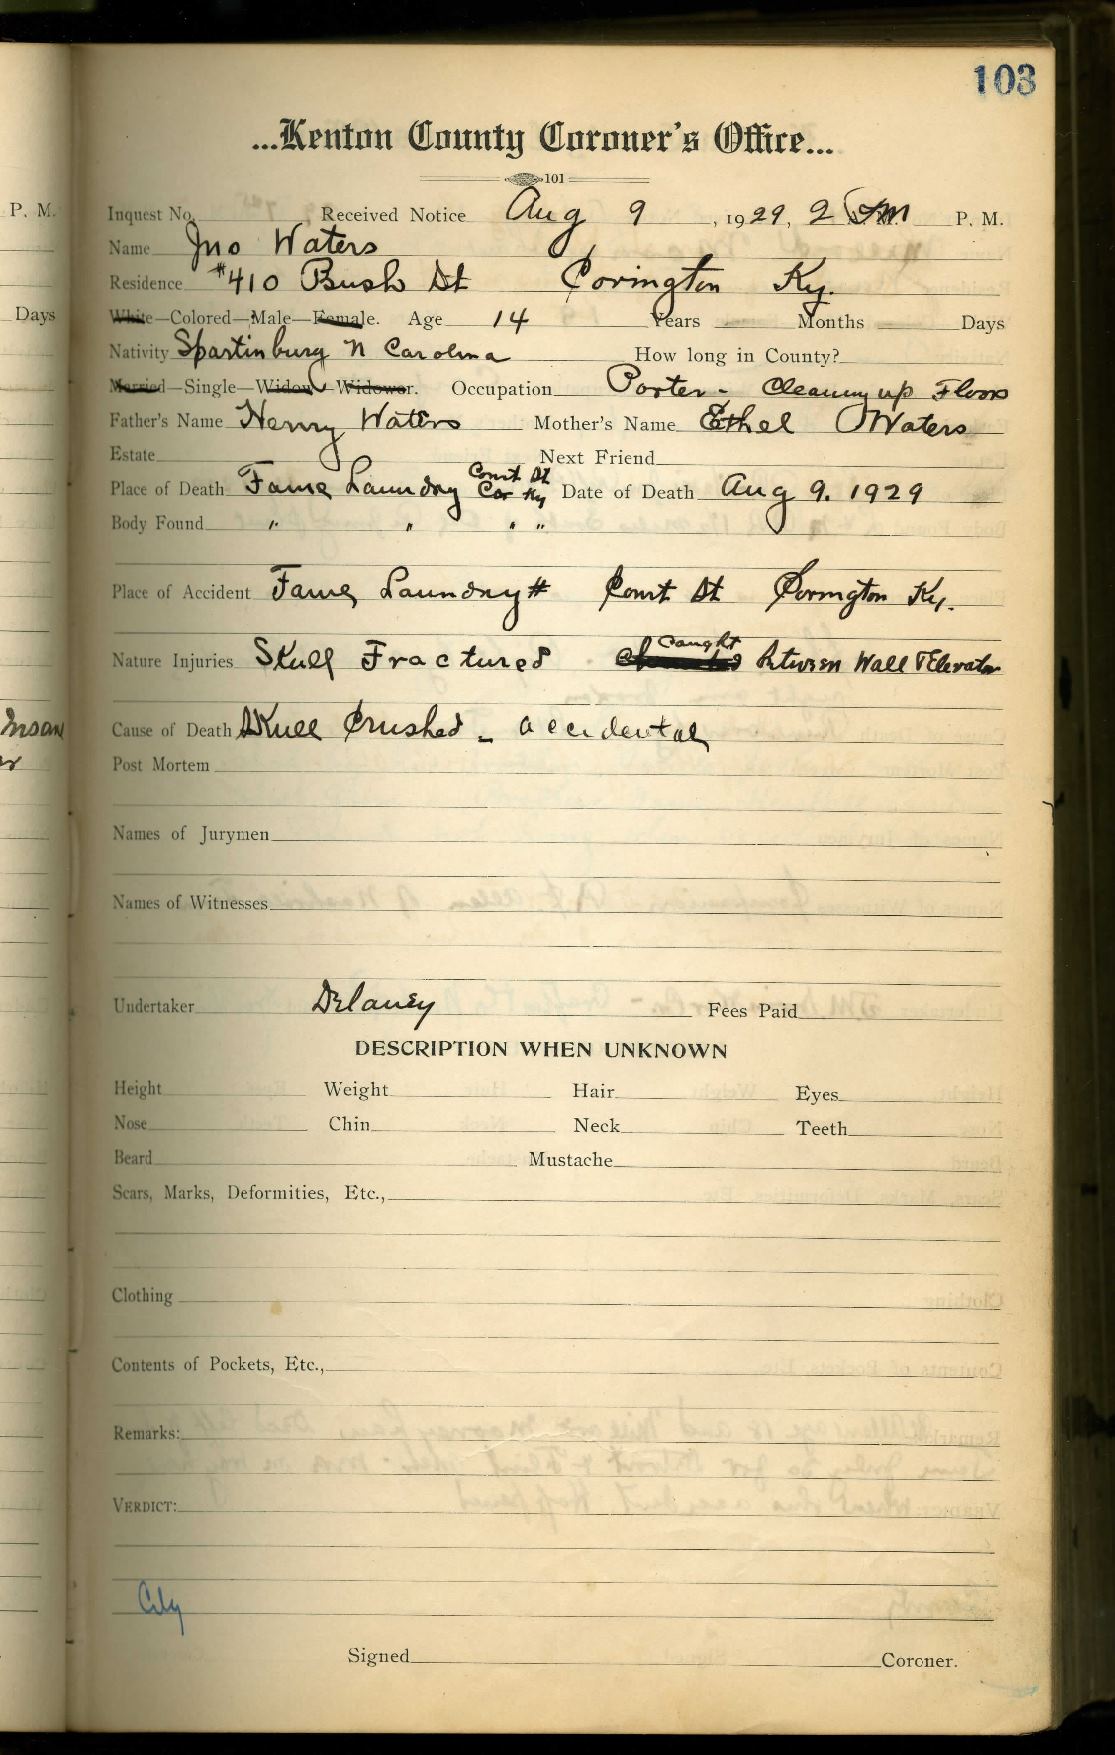 103
...Kenton County Coroner's Office...
101
P. M.
Inquest No. Received Notice Aug 9, 1929, 2 P. M.
Name Jno Waters
Residence #410 Bush St Covington Ky.
Days
White—Colored—Male—Female. Age 14 Years Months Days
Nativity Spartinburg N Carolina How long in County?
Married—Single—Widow—Widower. Occupation Porter - Cleaning up Floors
Father's Name Henry Waters Mother's Name Ethel Waters
Estate Next Friend
Court St
Place of Death Fame Laundry Cov Ky Date of Death Aug 9. 1929
Body Found " " " "
Place of Accident Fame Laundry # Court St Covington Ky.
caught
Nature Injuries Skull Fractured. Between Wall & Elevator
Cause of Death Skull Crushed - accidental
Post Mortem
Names of Jurymen
Names of Witnesses
Undertaker Delaney Fees Paid
DESCRIPTION WHEN UNKNOWN
Height Weight Hair Eyes
Nose Chin Neck Teeth
Beard Mustache
Scars, Marks, Deformities, Etc.,
Clothing
Contents of Pockets, Etc.,
Remarks:
VERDICT:
City
Signed Coroner.